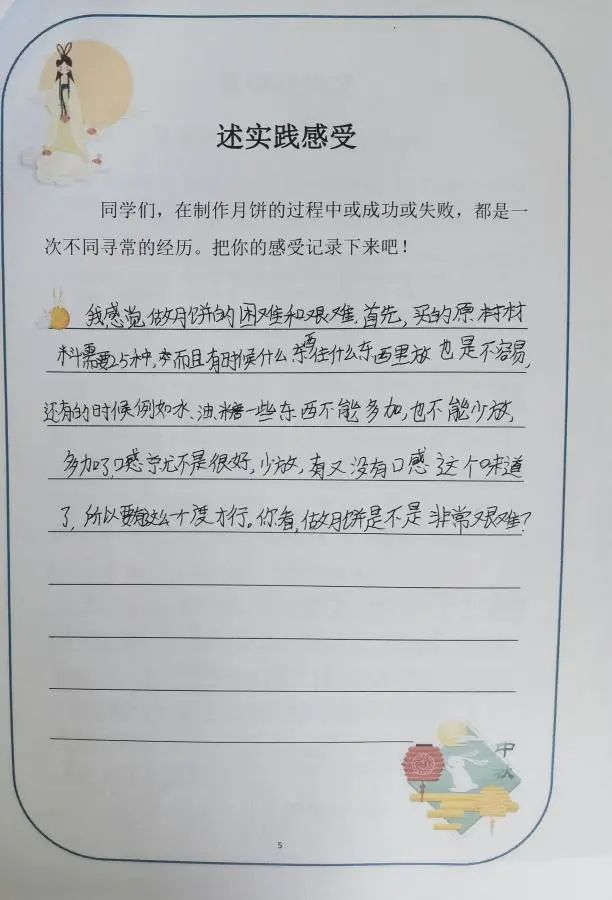 述实践感受
同学们，在制作月饼的过程中或成功或失败，都是一
次不同寻常的经历。把你的感受记录下来吧！
我感觉做月饼的困难和艰难，首先，买的原材材
料需要25种，而且有时候什么东西往什么东西里放也是不容易，
还有的时候例如水、油、糖一些东西不能多加，也不能少放，
多加了，口感就不是很好，少放，有又没有口感这个味道
了，所以要有这么个度才行。你看，做月饼是不是非常艰难？
中秋
5